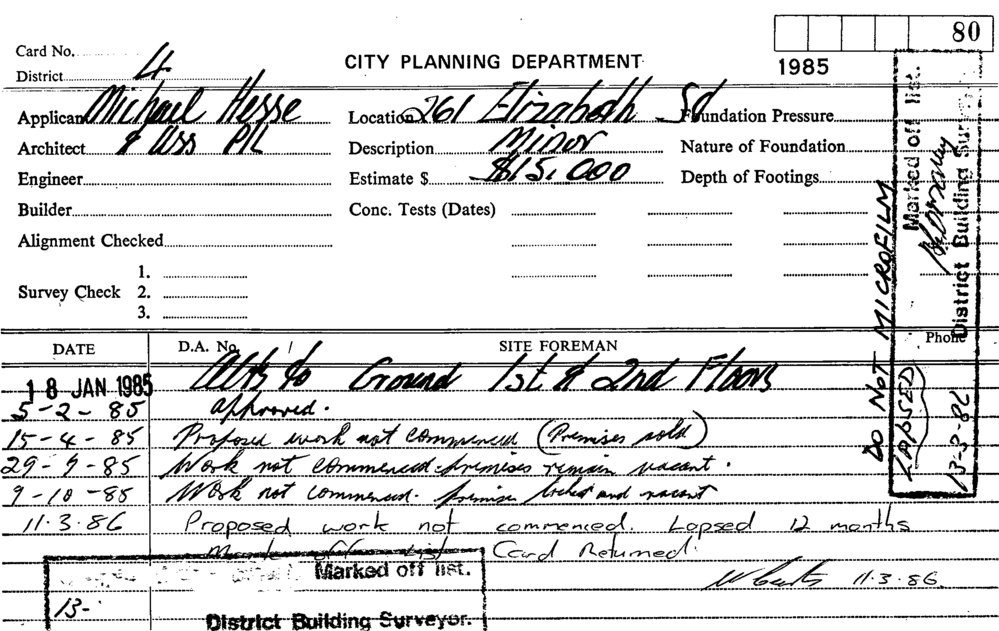 80
Card No.
1985
District 4
CITY PLANNING DEPARTMENT
Applicant Michael Hesse
Location 261 Elizabeth St
Foundation Pressure
Architect & Ass P/L
Description Minor
Nature of Foundation
Engineer
Estimate $ $15,000
Depth of Footings
Builder
Conc. Tests (Dates)
Alignment Checked
Survey Check
1.
2.
3.
DATE D.A. No. / SITE FOREMAN Phone
18 JAN 1985 Alts to Ground 1st & 2nd Floors
5-2-85 approved.
15-4-85 Proposed work not commenced (Premises sold)
29-7-85 Work not commenced-premises remain vacant.
9-10-85 Work not commenced. premises locked and vacant
11.3.86 Proposed work not commenced. Lapsed 12 months
Mark off List Card Returned.
11.3.86
Marked off list.
13-
District Building Surveyor.
DO NOT MICROFILM
LAPSED
Marked off list.
District Building Surv
13-3-86